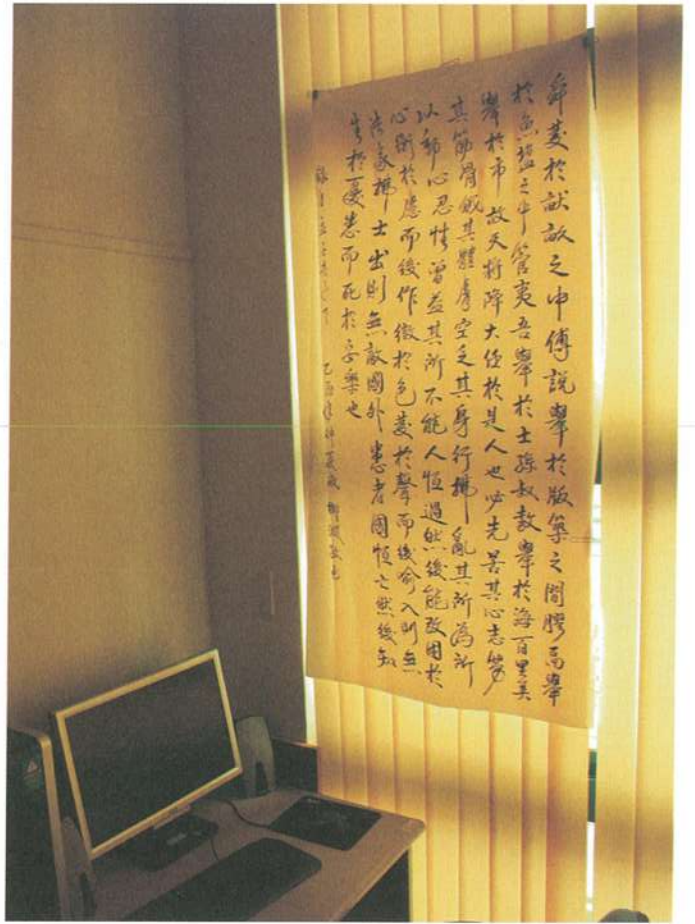 舜發於畎畝之中傅說舉於版築之間膠鬲舉
於魚鹽之中管夷吾舉於士孫叔敖舉於海百里奚
舉於市故天將降大任於是人也必先苦其心志勞
其筋骨餓其體膚空乏其身行拂亂其所為所
以動心忍性曾益其所不能人恒過然後能改困於
心衡於慮而後作徵於色發於聲而後喻入則無
法家拂士出則無敵國外患者國恒亡然後知
生於憂患而死於安樂也
乙酉年仲夏